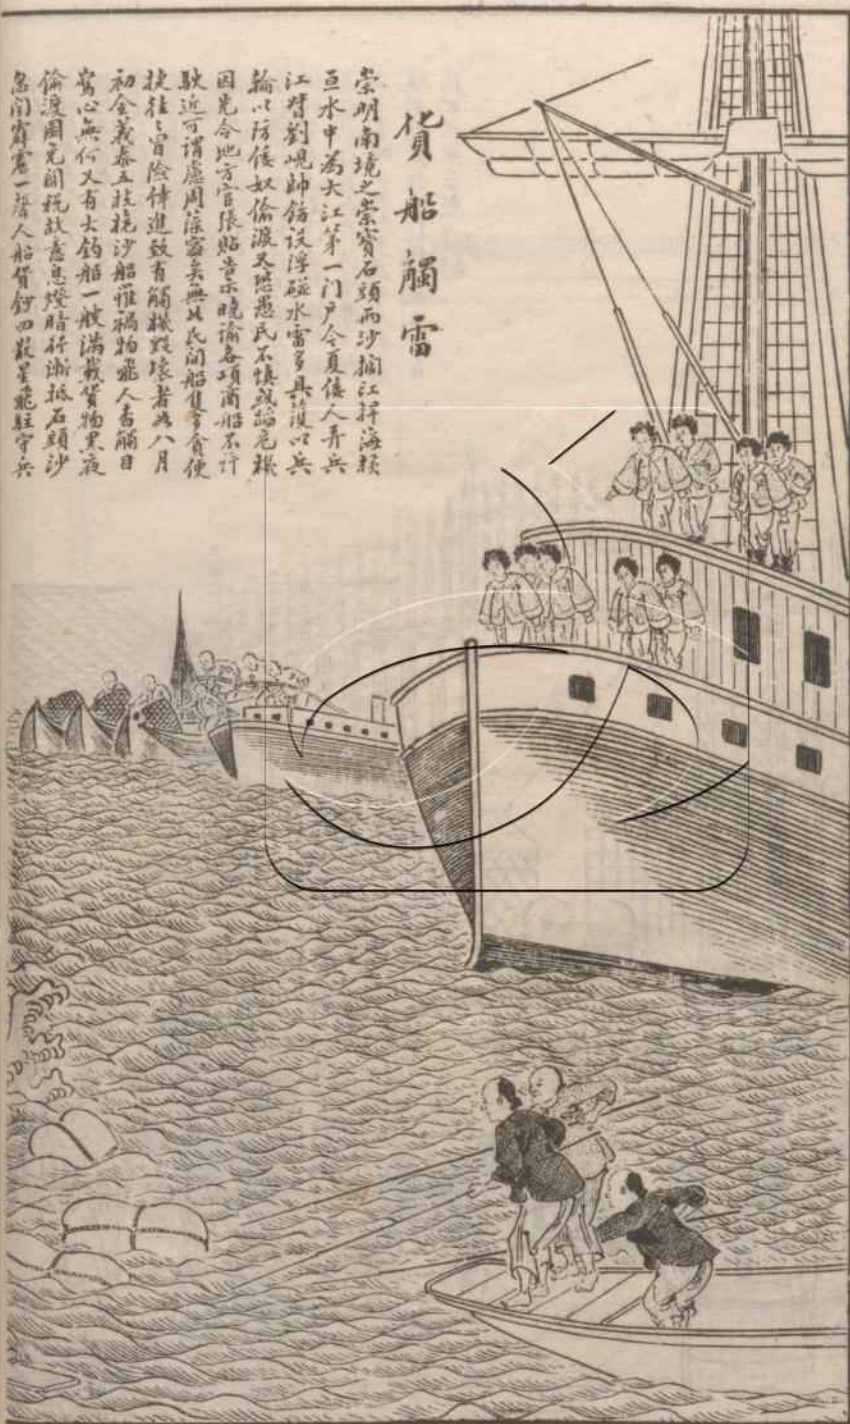 貨船觸雷
崇明南境之崇寶石頭兩沙捆江捍海橫
亘水中為大江第一門户今夏倭人弄兵
江督劉峴帥飭設浮碰水雷多具護以兵
輪以防倭奴偷渡又恐愚民不慎致蹈危機
因先令地方官張貼告示曉諭各項商船不許
駛近可謂慮周藻密矣無如民間船隻多貪便
捷往往冒險倖進致有觸機毀壞者如八月
初金義泰五枝桅沙船罹禍物飛人杳觸目
驚心無何又有大釣船一艘滿載貨物黑夜
偷渡圖免關稅故意息燈暗行漸抵石頭沙
忽聞霹靂一聲人船貨鈔四散星飛駐守兵